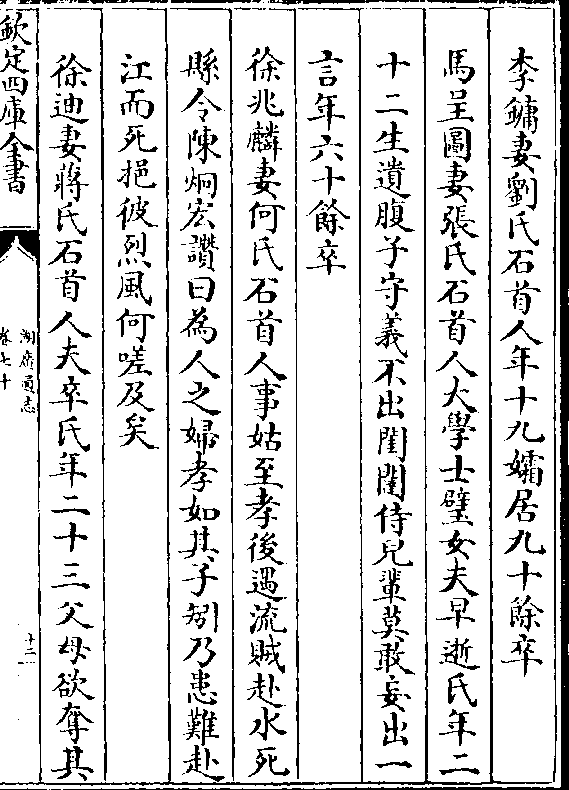 李鏞妻劉氏石首人年十九孀居九十餘卒
馬呈圖妻張氏石首人大學士璧女夫早逝氏年二
十二生遺腹子守義不出閨闥侍兒輩莫敢妄出一
言年六十餘卒
徐兆麟妻何氏石首人事姑至孝後遇流賊赴水死
縣令陳炯宏讃曰為人之婦孝如其子矧乃患難赴
江而死挹彼烈風何嗟及矣
徐迪妻蔣氏石首人夫卒氏年二十三父母欲奪其
欽定四庫全書
湖廣通志
卷七十
十二